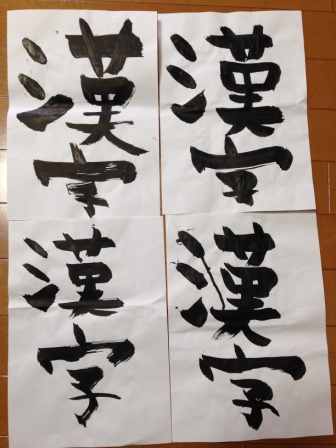 漢字
漢字
漢字
漢字